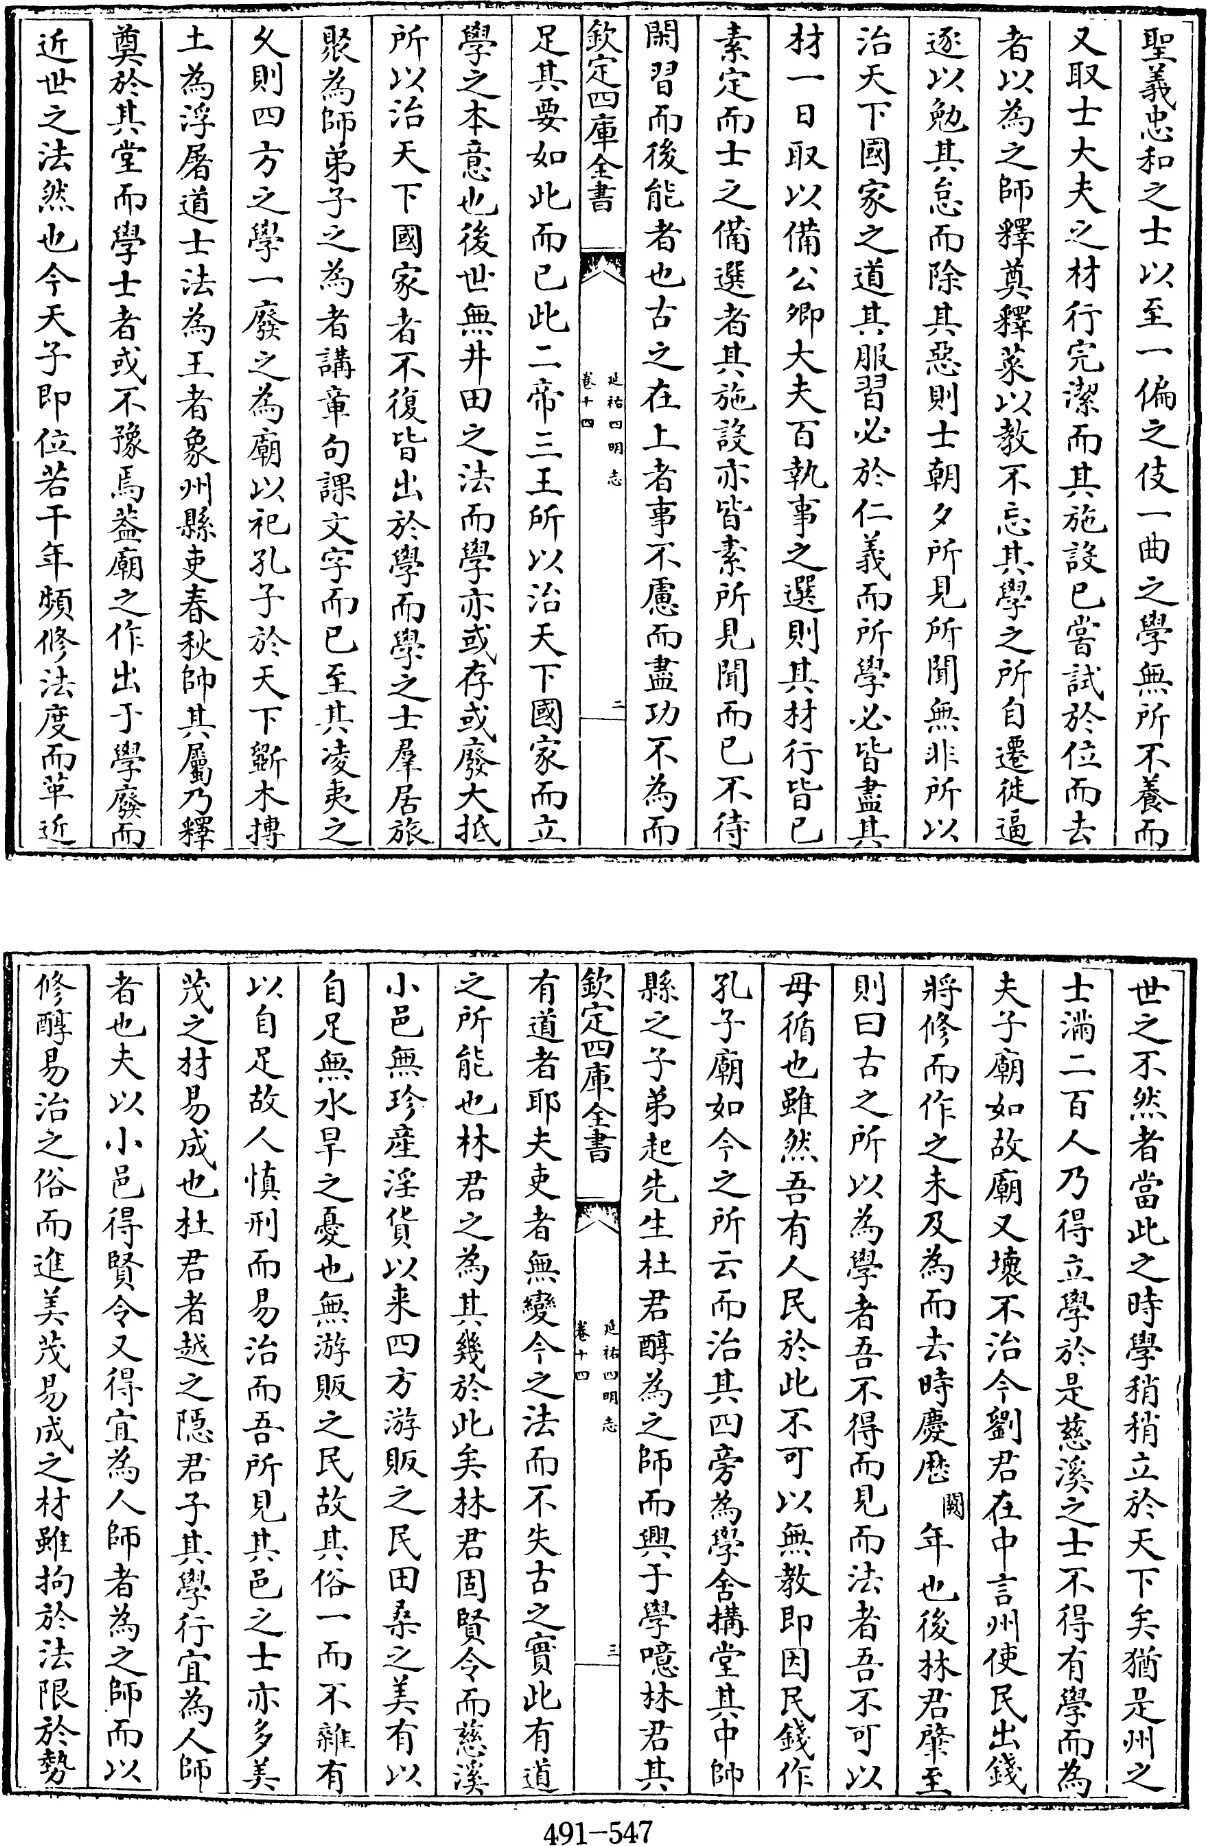 聖義忠和之士以至一偏之伎一曲之學無所不養而
又取士大夫之材行完潔而其施設已嘗試於位而去
者以為之師釋奠釋菜以教不忘其學之所自遷徙逼
逐以勉其怠而除其惡則士朝夕所見所聞無非所以
治天下國家之道其服習必於仁義而所學必皆盡其
材一日取以備公卿大夫百執事之選則其材行皆已
素定而士之備選者其施設亦皆素所見聞而已不待
閑習而後能者也古之在上者事不慮而盡功不為而
欽定四庫全書
延祐四明志
卷十四
二
足其要如此而已此二帝三王所以治天下國家而立
學之本意也後世無井田之法而學亦或存或廢大抵
所以治天下國家者不復皆出於學而學之士羣居旅
聚為師弟子之為者講章句課文字而已至其凌夷之
久則四方之學一廢之為廟以祀孔子於天下斵木摶
土為浮屠道士法為王者象州縣吏春秋帥其屬乃釋
奠於其堂而學士者或不豫焉葢廟之作出于學廢而
近世之法然也今天子即位若干年頻修法度而革近
世之不然者當此之時學稍稍立於天下矣猶是州之
士滿二百人乃得立學於是慈溪之士不得有學而為
夫子廟如故廟又壞不治今劉君在中言州使民出錢
將修而作之未及為而去時慶厯闕年也後林君肇至
則曰古之所以為學者吾不得而見而法者吾不可以
毋循也雖然吾有人民於此不可以無教即因民錢作
孔子廟如今之所云而治其四旁為學舍構堂其中帥
縣之子弟起先生杜君醇為之師而興于學噫林君其
欽定四庫全書
延祐四明志
卷十四
三
有道者耶夫吏者無變今之法而不失古之實此有道
之所能也林君之為其幾於此矣林君固賢令而慈溪
小邑無珍產淫貨以来四方游販之民田桑之美有以
自足無水旱之憂也無游販之民故其俗一而不雜有
以自足故人慎刑而易治而吾所見其邑之士亦多美
茂之材易成也杜君者越之隱君子其學行宜為人師
者也夫以小邑得賢令又得宜為人師者為之師而以
修醇易治之俗而進美茂易成之材雖拘於法限於勢
491-547